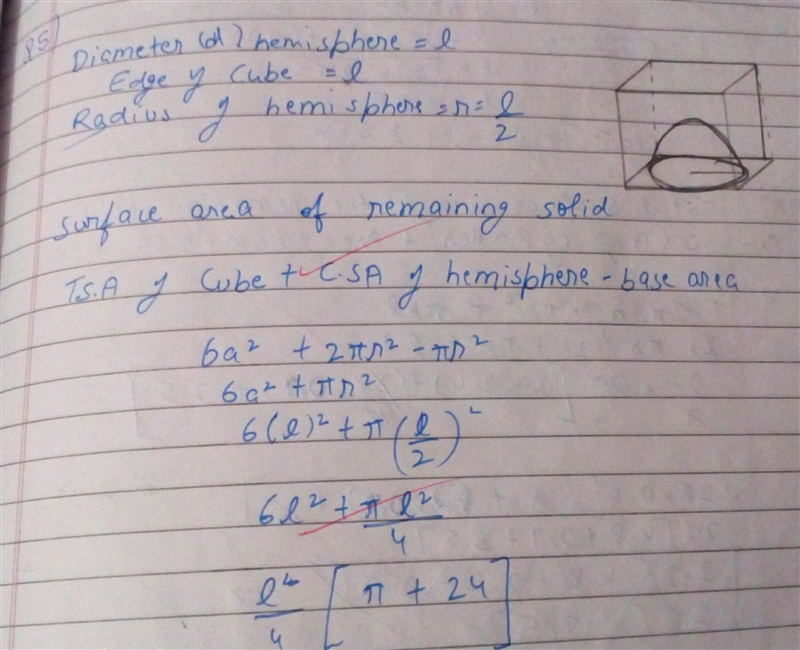 85)
Diameter (d) hemisphere = l
Edge of Cube = l
Radius of hemisphere = r = l/2
Surface area of remaining solid
T.S.A of Cube + C.SA of hemisphere - base area
6a² + 2πr² - πr²
6a² + πr²
6(l)² + π(l/2)²
6l² + πl²/4
l²/4 [π + 24]